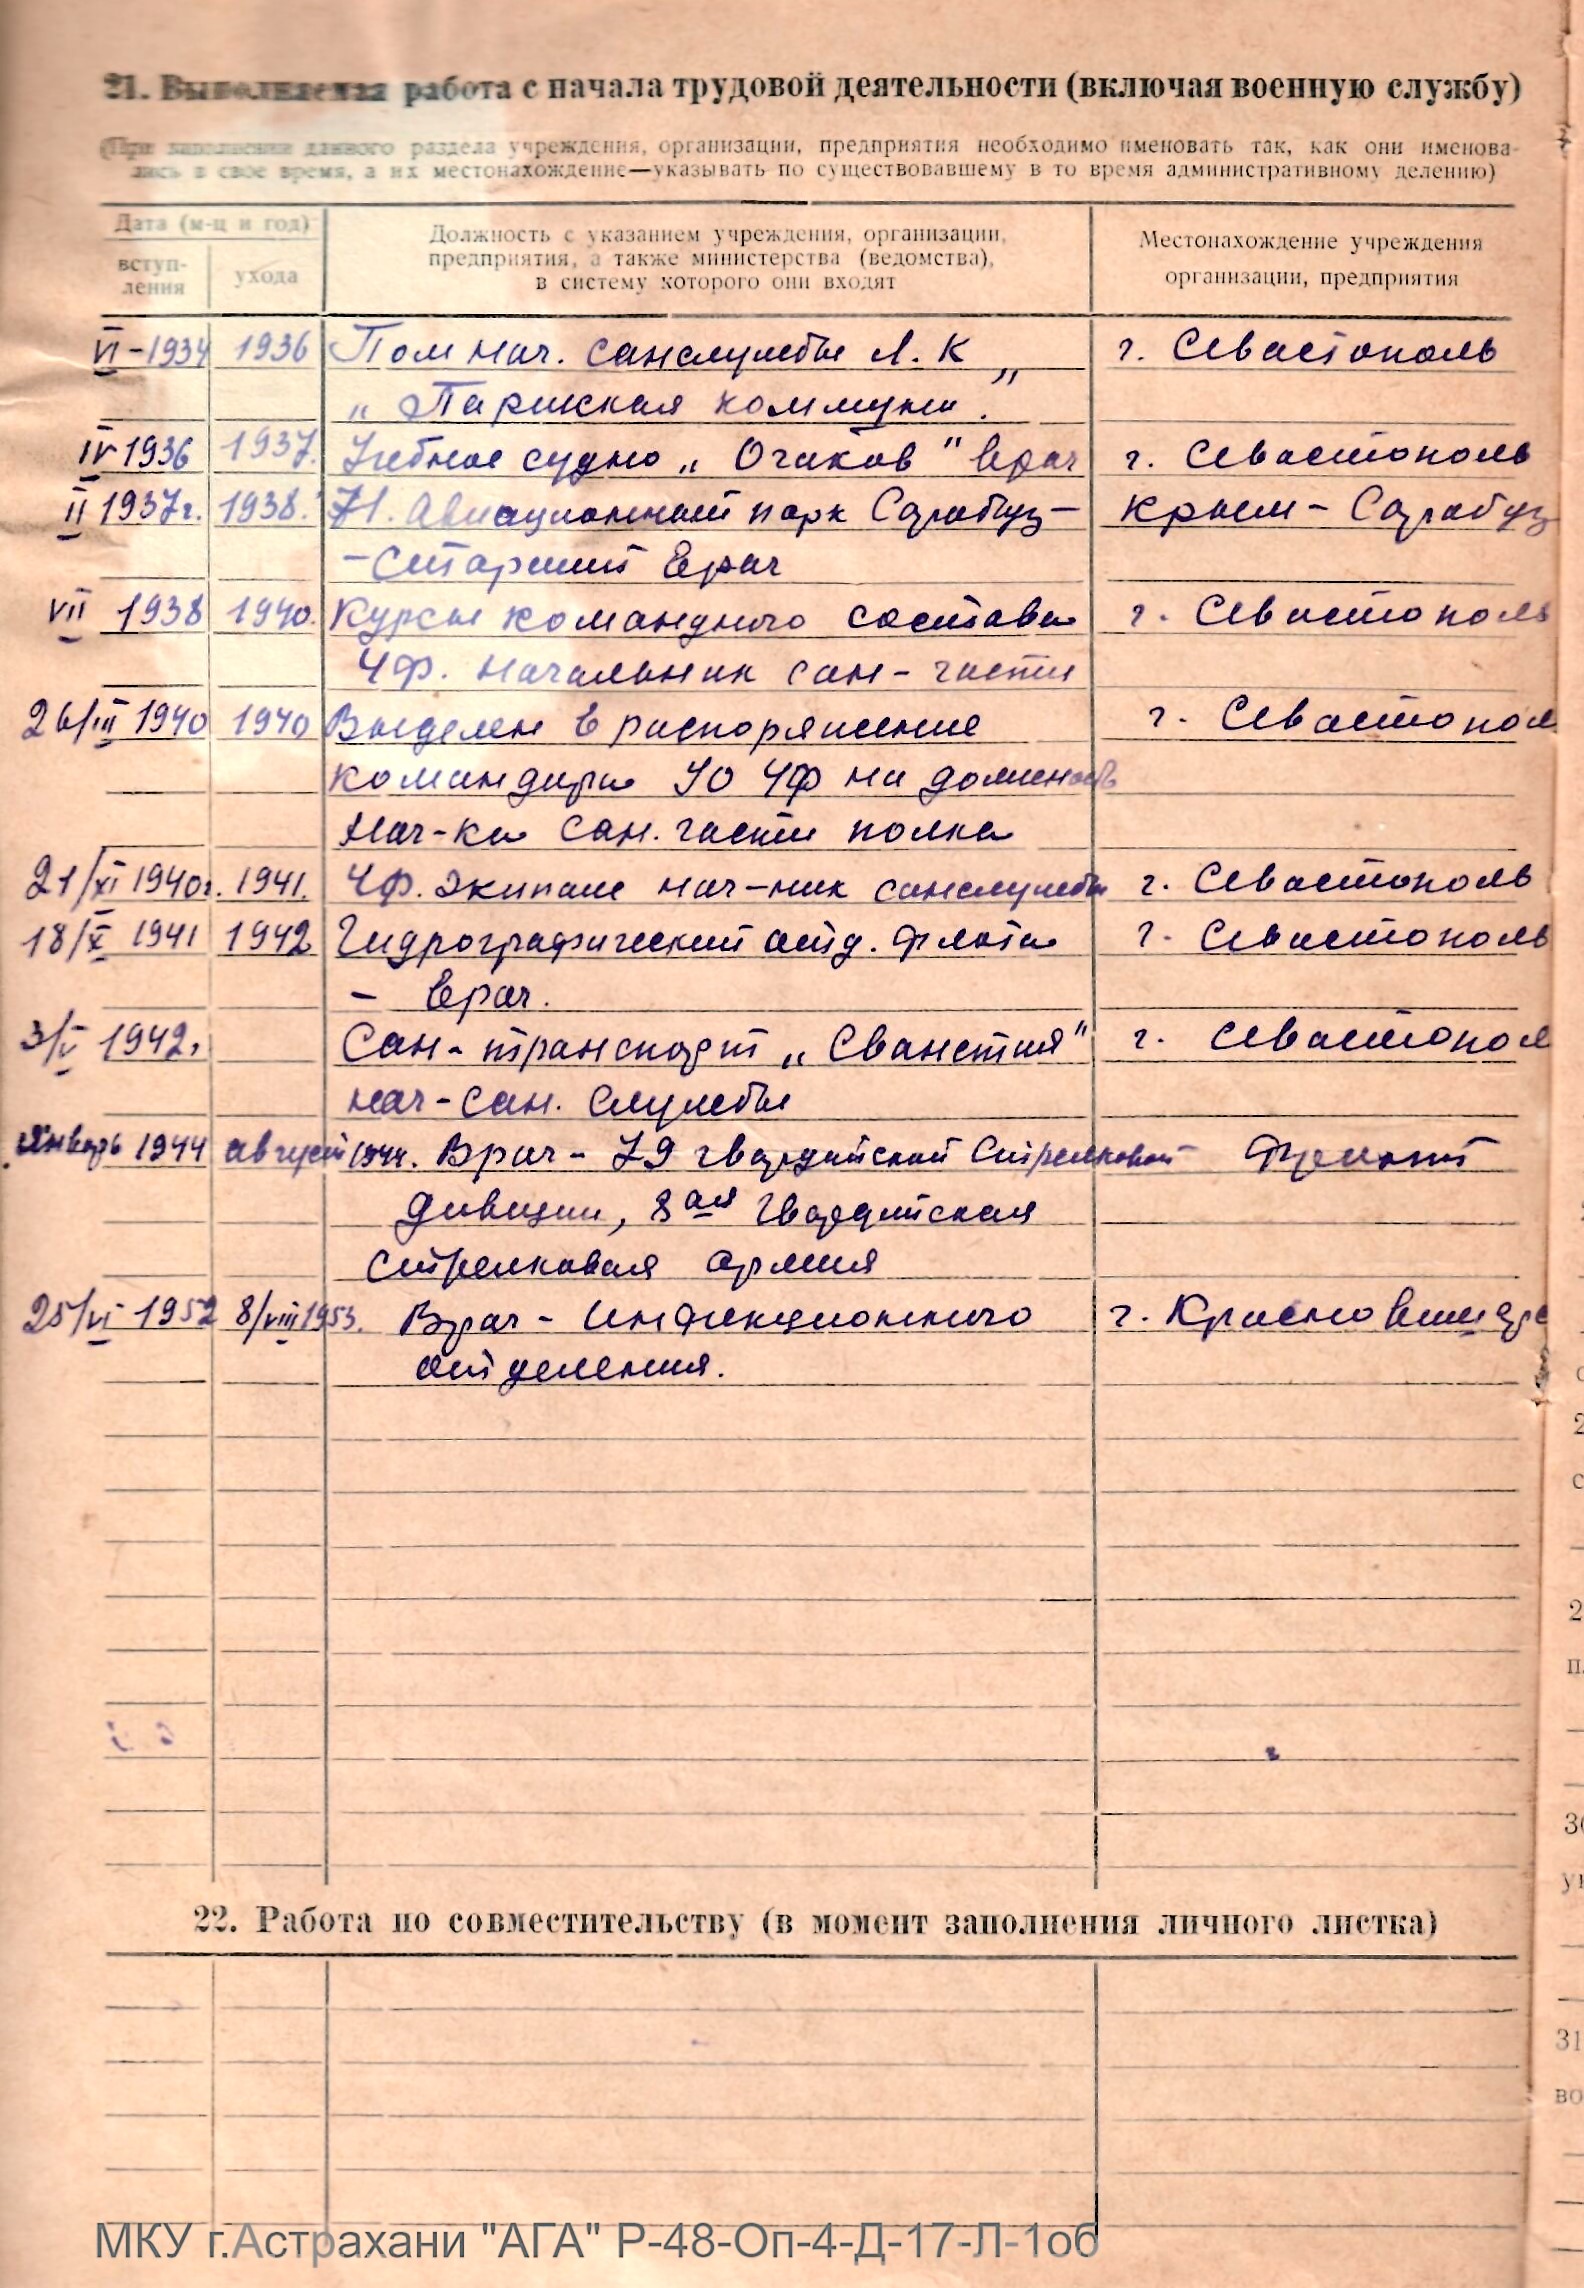 21. Выполняемая работа с начала трудовой деятельности (включая военную службу)
(При заполнении данного раздела учреждения, организации, предприятия необходимо именовать так, как они именова-
лись в свое время, а их местонахождение—указывать по существовавшему в то время административному делению)
Дата (м-ц и год)
вступ-
ления
ухода
Должность с указанием учреждения, организации,
предприятия, а также министерства (ведомства),
в систему которого они входят
Местонахождение учреждения
организации, предприятия
VI-1934 1936 Пом нач. санслужбы Л. К г. Севастополь
„Парижская коммуна."
IV 1936 1937. Учебное судно „Очаков" врач г. Севастополь
II 1937г. 1938. 71. Авиационный парк Сарабуз- Крым - Сарабуз
- Старший врач
VII 1938 1940. Курсы командного состава г. Севастополь
ЧФ. начальник сан-части
26/III 1940 1940 Выделен в распоряжение г. Севастопол
командира УО ЧФ на должность
Нач-ка сан. части полка
21/XI 1940г. 1941. ЧФ. Экипаж нач-ник санслужбы г. Севастополь
18/X 1941 1942 Гидрографический отд. флота г. Севастополь
- врач.
3/V 1942. Сан-транспорт „Сванетия" г. Севастопол
нач-сан. службы
Январь 1944 август 1944. Врач - 79 гвардейской Стрелковой Фронт
дивизии, 8ая Гвардейская
стрелковая армия
25/VI 1952 8/VIII 1953. Врач - Инфекционного г. Красновишерс
отделения.
22. Работа по совместительству (в момент заполнения личного листка)
МКУ г.Астрахани "АГА" Р-48-Оп-4-Д-17-Л-1об